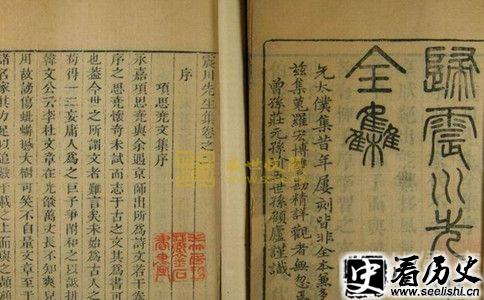 歸震川先
全集
先太僕集昔年屢刻皆非全本兼多
茲集蒐羅宏博讐勘精詳觀者無忽焉
曾孫莊元孫玠五世孫顧廬謹識
震川先生集卷之
序
項思堯文集序
永嘉項思堯與余遇京師出所爲詩文若干
序之思堯懷奇未試而志于古之文其爲書可
也蓋今世之所謂文者難言矣未始爲古人
苟得一二妄庸人爲之巨子爭附和之以詆排
韓文公云李杜文章在光燄萬丈長
用故謗傷蚍蜉撼大樹可笑不自量文章至
諸名家其力足以追數千載之上而與之頡
史看历史
www.seelishi.cn